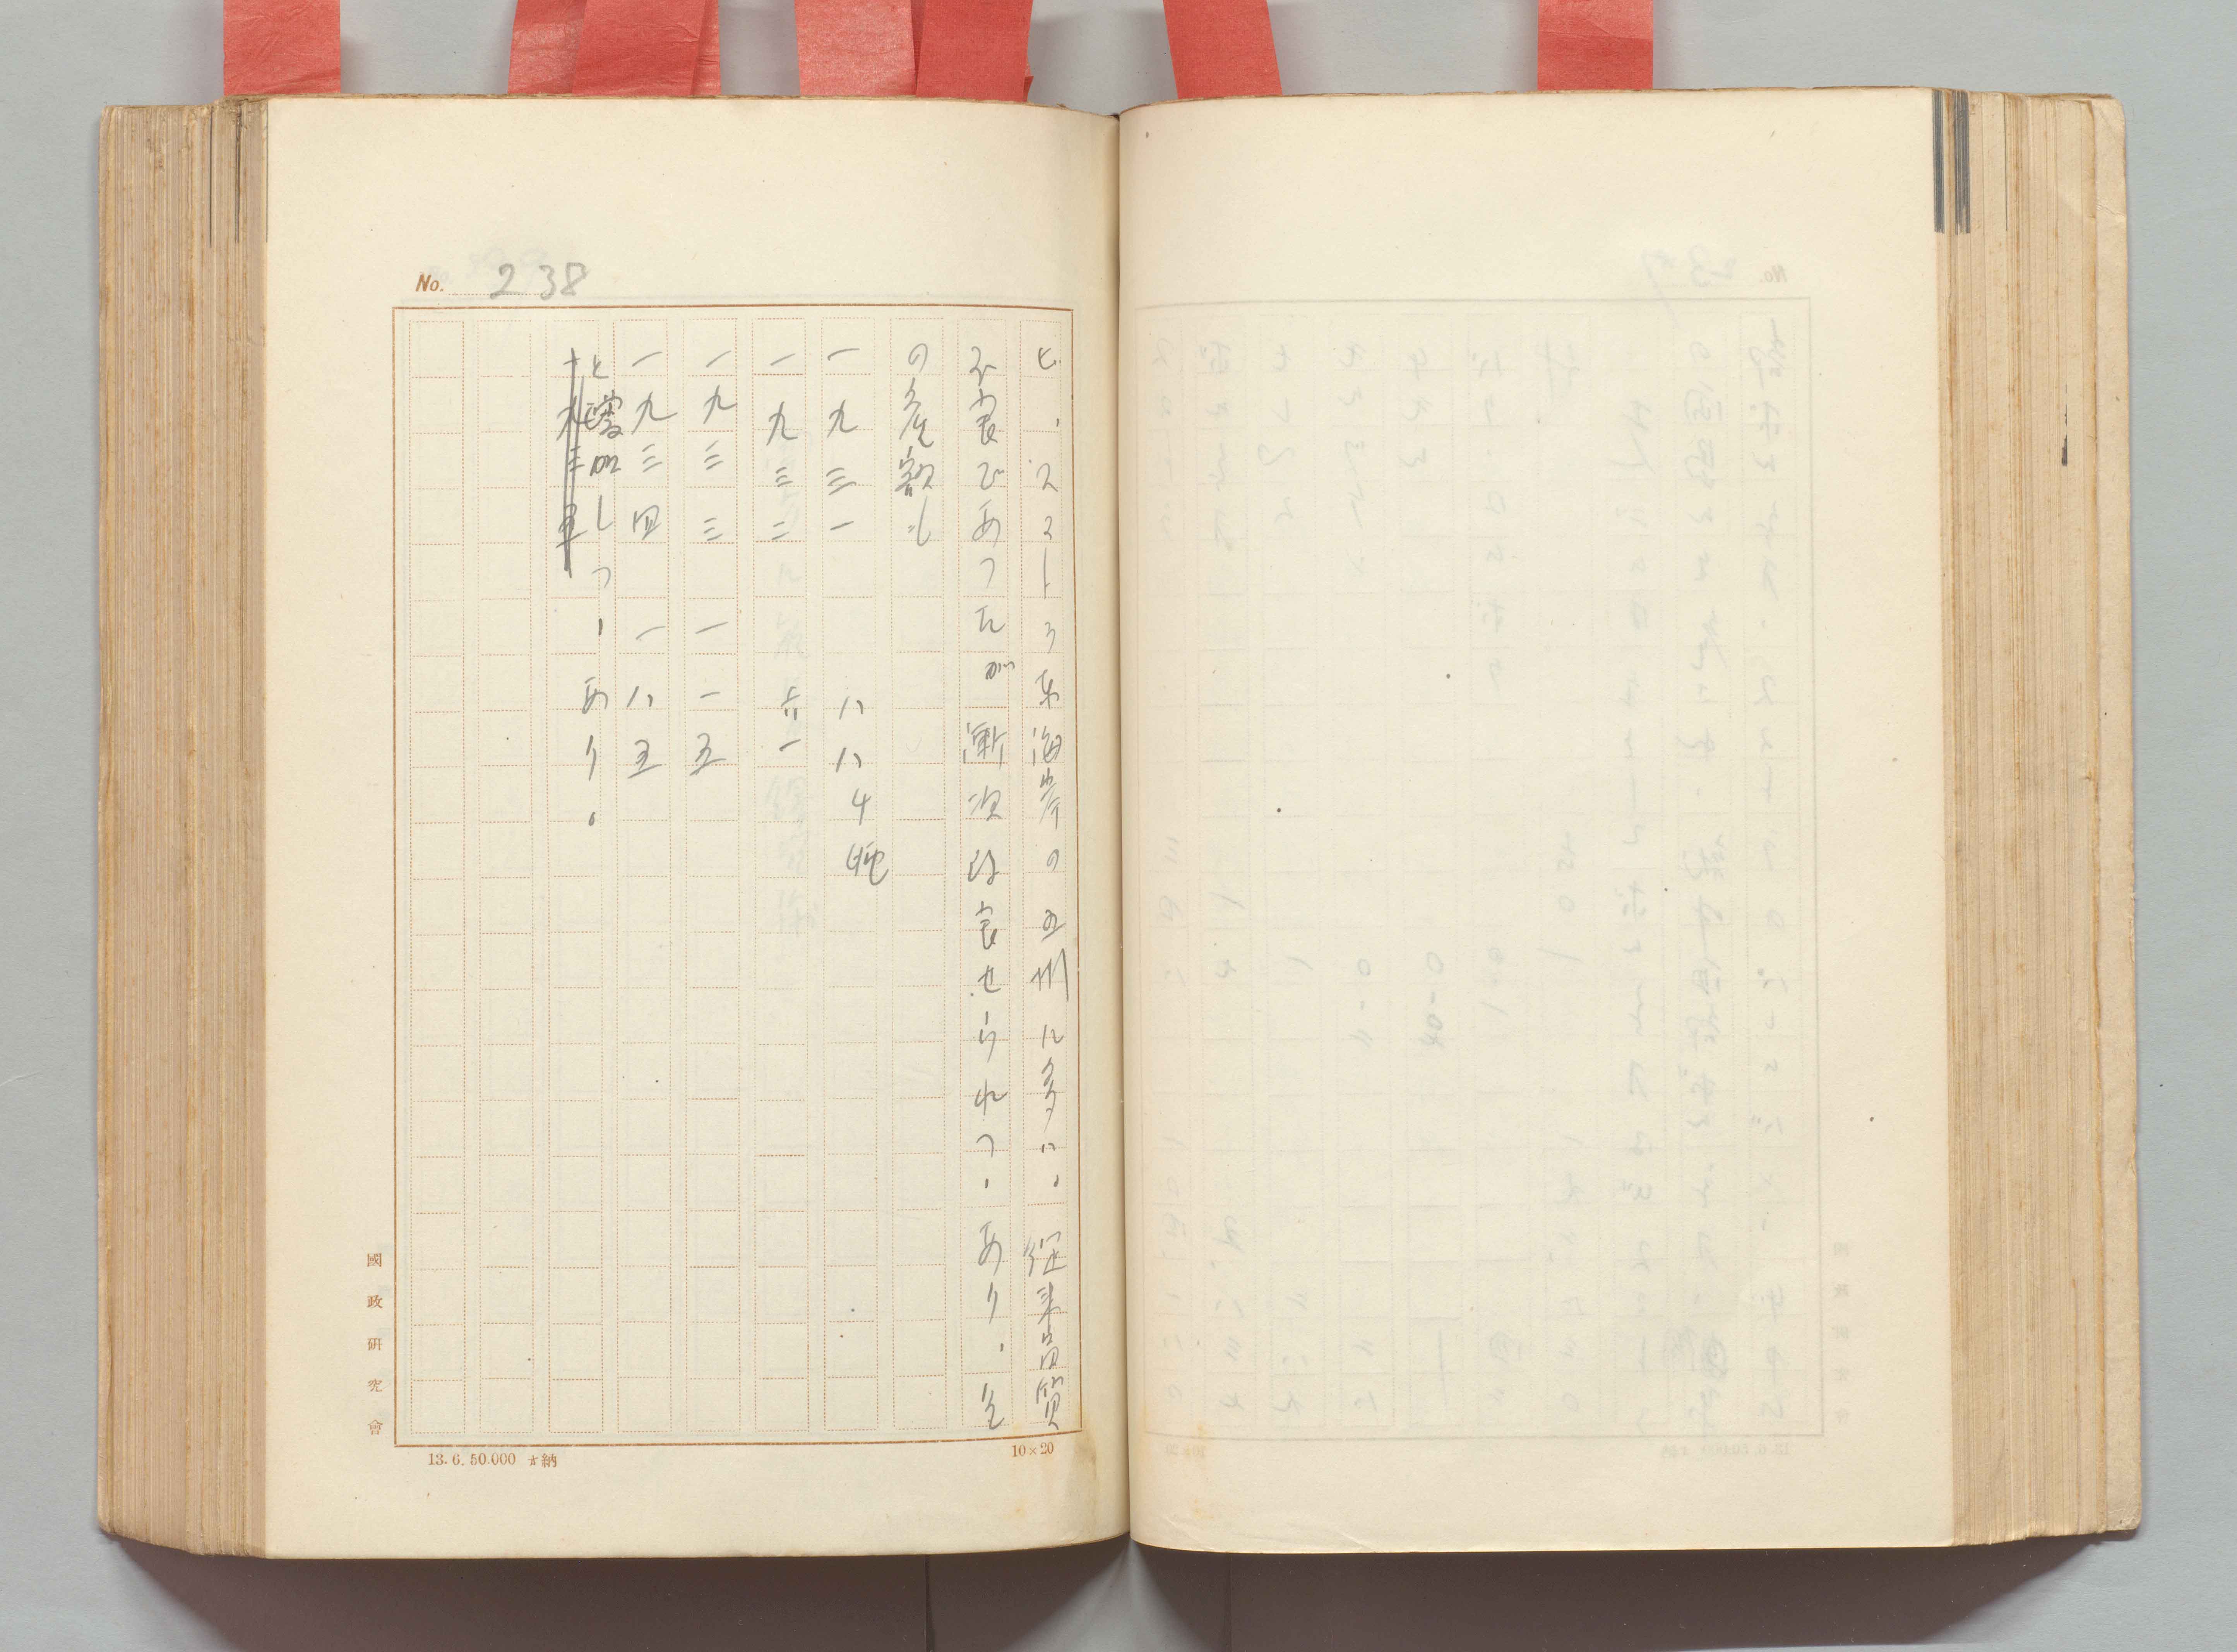 No. 238
と、スマトラ東海岸の五州に多い。従来品質
不良であつたが漸次改良せられつゝあり、
の産額も
一九三一 八八千瓲
一九三二 六一
一九三三 一一五
一九三四 一八五
と増加しつゝあり。
國政研究會
13.6.50.000 納
10×20